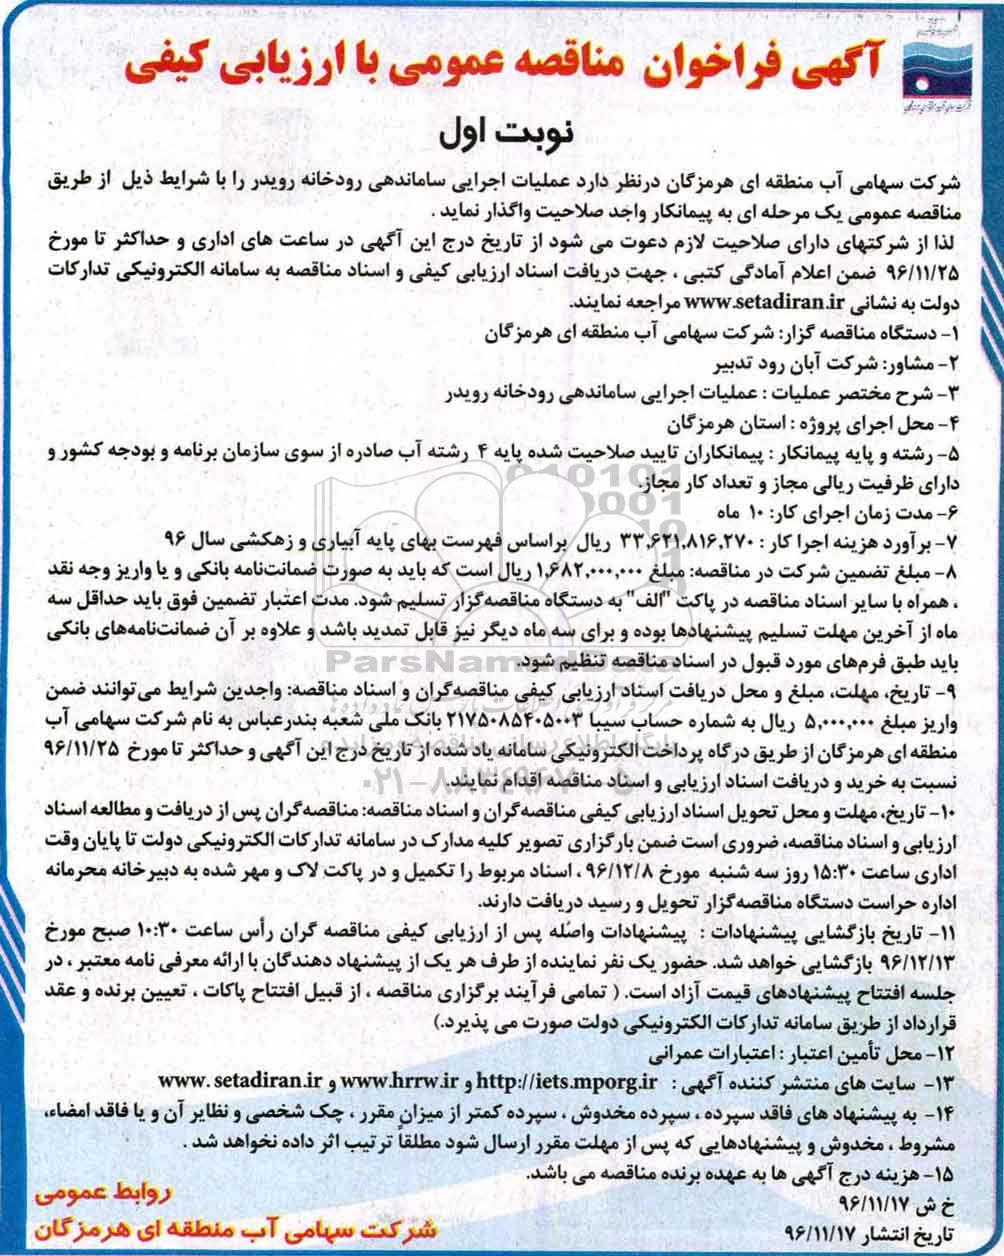 آگهی فراخوان مناقصه عمومی با ارزیابی کیفی
نوبت اول
شرکت سهامی آب منطقه ای هرمزگان درنظر دارد عملیات اجرایی ساماندهی رودخانه رویدر را با شرایط ذیل از طریق
مناقصه عمومی یک مرحله ای به پیمانکار واجد صلاحیت واگذار نماید .
لذا از شرکتهای دارای صلاحیت لازم دعوت می شود از تاریخ درج این آگهی در ساعت های اداری و حداکثر تا مورخ
۹۶/۱۱/۲۵ ضمن اعلام آمادگی کتبی ، جهت دریافت اسناد ارزیابی کیفی و اسناد مناقصه به سامانه الکترونیکی تدارکات
دولت به نشانی www.setadiran.ir مراجعه نمایند.
۱- دستگاه مناقصه گزار: شرکت سهامی آب منطقه ای هرمزگان
۲- مشاور: شرکت آبان رود تدبیر
۳- شرح مختصر عملیات : عملیات اجرایی ساماندهی رودخانه رویدر
۴- محل اجرای پروژه : استان هرمزگان
۵- رشته و پایه پیمانکار : پیمانکاران تایید صلاحیت شده پایه ۴ رشته آب صادره از سوی سازمان برنامه و بودجه کشور و
دارای ظرفیت ریالی مجاز و تعداد کار مجاز.
۶- مدت زمان اجرای کار: ۱۰ ماه
۷- برآورد هزینه اجرا کار : ۳۳,۶۲۱,۸۱۶,۲۷۰ ریال براساس فهرست بهای پایه آبیاری و زهکشی سال ۹۶
۸- مبلغ تضمین شرکت در مناقصه: مبلغ ۱,۶۸۲,۰۰۰,۰۰۰ ریال است که باید به صورت ضمانت‌نامه بانکی و یا واریز وجه نقد
، همراه با سایر اسناد مناقصه در پاکت "الف" به دستگاه مناقصه‌گزار تسلیم شود. مدت اعتبار تضمین فوق باید حداقل سه
ماه از آخرین مهلت تسلیم پیشنهادها بوده و برای سه ماه دیگر نیز قابل تمدید باشد و علاوه بر آن ضمانت‌نامه‌های بانکی
باید طبق فرم‌های مورد قبول در اسناد مناقصه تنظیم شود.
ParsNamadData
۹- تاریخ، مهلت، مبلغ و محل دریافت اسناد ارزیابی کیفی مناقصه‌گران و اسناد مناقصه: واجدین شرایط می‌توانند ضمن
واریز مبلغ ۵,۰۰۰,۰۰۰ ریال به شماره حساب سیبا ۲۱۷۵۰۸۵۴۰۵۰۰۳ بانک ملی شعبه بندرعباس به نام شرکت سهامی آب
منطقه ای هرمزگان از طریق درگاه پرداخت الکترونیکی سامانه یاد شده از تاریخ درج این آگهی و حداکثر تا مورخ ۹۶/۱۱/۲۵
نسبت به خرید و دریافت اسناد ارزیابی و اسناد مناقصه اقدام نمایند.
۰۲۱-۸۸۳۴۹۶۷۰-۵
۱۰- تاریخ، مهلت و محل تحویل اسناد ارزیابی کیفی مناقصه‌گران و اسناد مناقصه: مناقصه‌گران پس از دریافت و مطالعه اسناد
ارزیابی و اسناد مناقصه، ضروری است ضمن بارگزاری تصویر کلیه مدارک در سامانه تدارکات الکترونیکی دولت تا پایان وقت
اداری ساعت ۱۵:۳۰ روز سه شنبه مورخ ۹۶/۱۲/۸ ، اسناد مربوط را تکمیل و در پاکت لاک و مهر شده به دبیرخانه محرمانه
اداره حراست دستگاه مناقصه‌گزار تحویل و رسید دریافت دارند.
۱۱- تاریخ بازگشایی پیشنهادات : پیشنهادات واصله پس از ارزیابی کیفی مناقصه گران رأس ساعت ۱۰:۳۰ صبح مورخ
۹۶/۱۲/۱۳ بازگشایی خواهد شد. حضور یک نفر نماینده از طرف هر یک از پیشنهاد دهندگان با ارائه معرفی نامه معتبر ، در
جلسه افتتاح پیشنهادهای قیمت آزاد است. ( تمامی فرآیند برگزاری مناقصه ، از قبیل افتتاح پاکات ، تعیین برنده و عقد
قرارداد از طریق سامانه تدارکات الکترونیکی دولت صورت می پذیرد.)
۱۲- محل تأمین اعتبار : اعتبارات عمرانی
۱۳- سایت های منتشر کننده آگهی : http://iets.mporg.ir و www.hrrw.ir و www. setadiran.ir
۱۴- به پیشنهاد های فاقد سپرده ، سپرده مخدوش ، سپرده کمتر از میزان مقرر ، چک شخصی و نظایر آن و یا فاقد امضاء،
مشروط ، مخدوش و پیشنهادهایی که پس از مهلت مقرر ارسال شود مطلقاً ترتیب اثر داده نخواهد شد .
۱۵- هزینه درج آگهی ها به عهده برنده مناقصه می باشد.
خ ش ۹۶/۱۱/۱۷
تاریخ انتشار ۹۶/۱۱/۱۷
روابط عمومی
شرکت سهامی آب منطقه ای هرمزگان